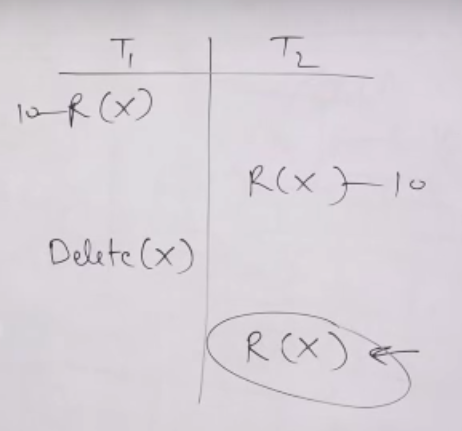 T1 T2
10 R(X)
R(X) 10
Delete(X)
R(X)